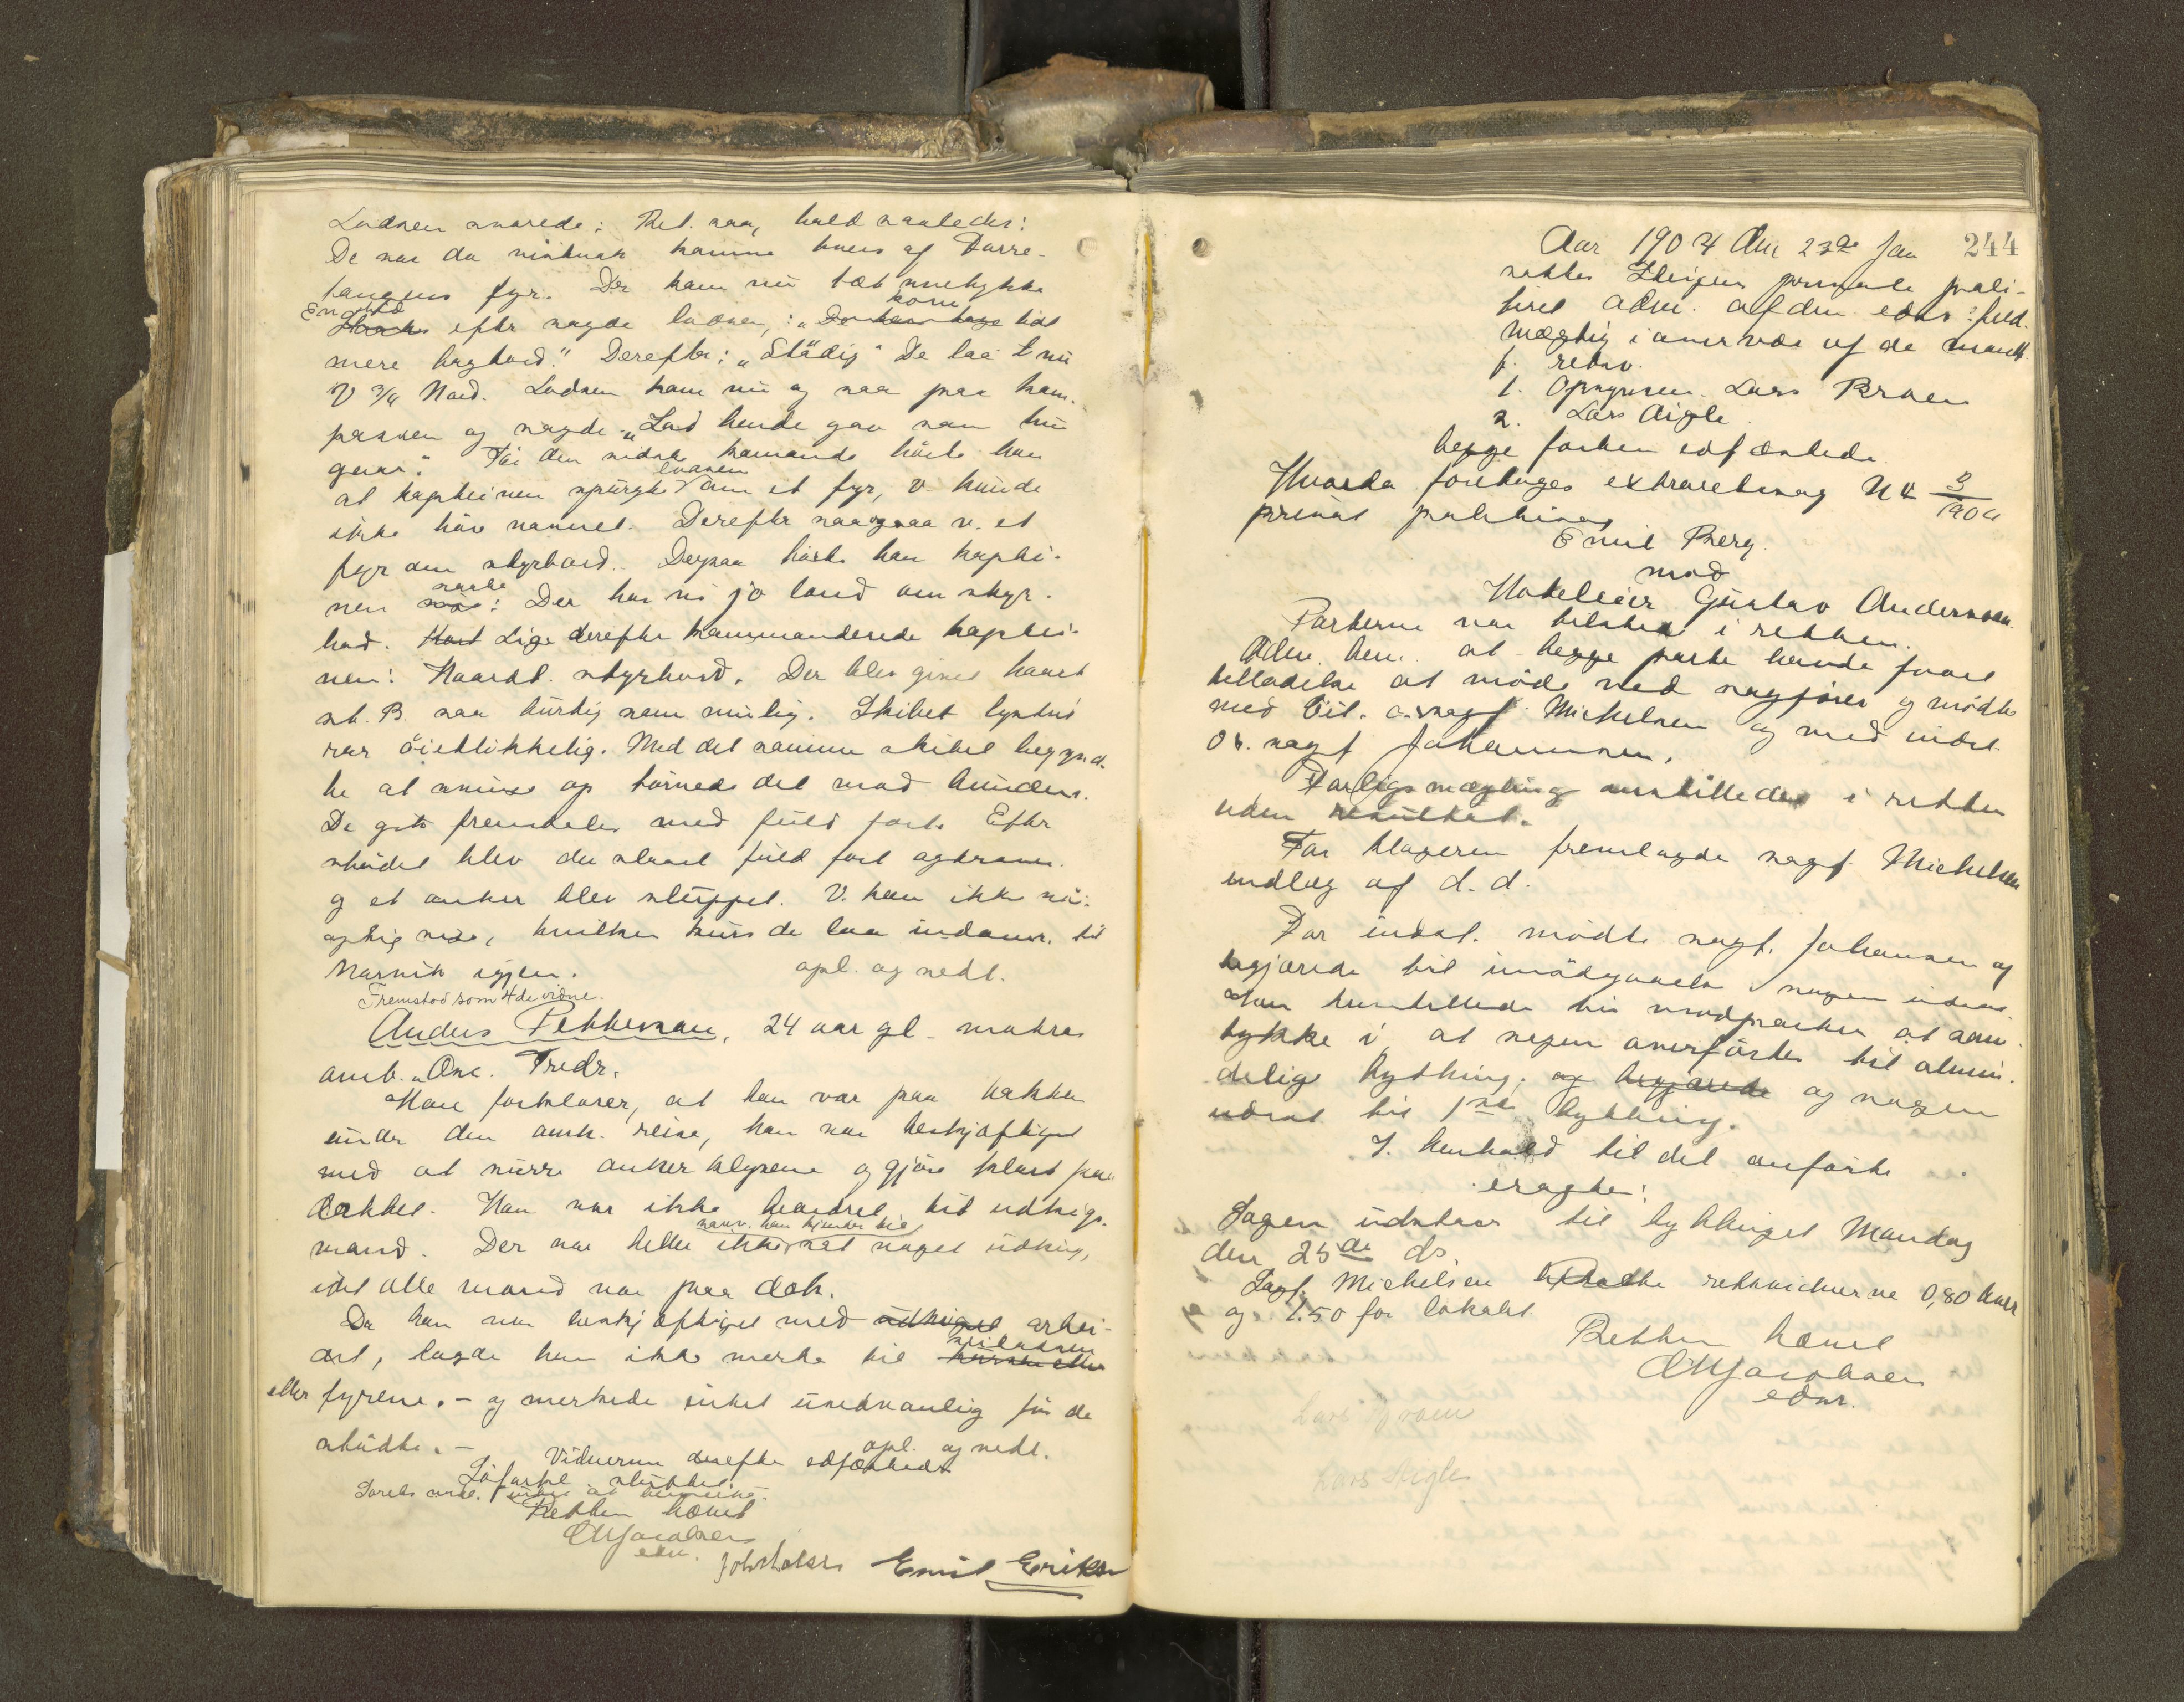 Lodsen svarede: Ret saa, hold saaledes:
De var da vistnok komne tvers af Barre-
tangens fyr. Der kom nu tæt snetykke
En stund
efter sagde lodsen: "kom lidt
mere bagbord." Derefter: "Städig" De laa t nu
V 3/4 Nord. Lodsen kom nu og saa paa kom-
passen og sagde "Lad hende gaa som hun
gaar." Paa den sidste kommando hörte han
at kapteinen spurgte lodsen om et fyr, v. kunde
ikke höre navnet. Derefter saa ogsaa v. et
fyr om styrbord. Derpaa hörte han kaptei-
nen raabe: Der har vi jo land om styr-
bord. Lige derefter kommanderede kaptei-
nen: Haardt styrbord. Der blev givet haardt
st. B. saa hurtig som mulig. Skibet lystred
ror öieblikkelig. Med det samme skibet begynd-
te at svinge op törnede det mod bunden.
De gik fremdeles med fuld fart. Efter
stödet blev der slaaet fuld fart agterover
og et anker blev sluppet. V. kan ikke nöi-
agtig vide, hvilken kurs de laa indover til
Narvik igjen. opl. og vedt.
Fremstod som 4de vidne.
Anders Pettersen, 24 aar gl. matros
omb. "Osc. Fredr.
Han forklarer, at han var paa bakken
under den omh. reise, han var beskjæftiget
med at surre ankerklysene og gjöre klart paa
dækket. Han var ikke beordret til udkigs-
mand. Der var heller ikke saavidt han kjender til sat noget udkig,
idet alle mand var paa dæk.
Da han var beskjæftiget med udkiget arbei-
det, lagde han ikke merke til seiladsen
eller fyrene. - og merkede intet usedvanlig för de
stödte. - opl. og vedt.
Vidnerne derefter edfæstede
Söforkl. sluttet.
Retten hævet
CMJacobsen
edsv. Joh Molsen Emil Eriksen
244
Aar 1904 den 23de Jan
sattes Steigen private poli-
tiret adm. af den edsv. fuld-
mægtig i overvær af de mundt
f. retsv.
1. Opsynsm. Lars Broen
2. Lars Aigle
begge forhen edfæstede
Hvorda foretoges extraretssag No 3/904
privat politisag
Emil Berg
mod
Hotelleier Gustav Andersen
Parterne var tilstede i retten.
Adm. bem. at begge parter havde faaet
tilladelse at möde ved sagförer og mödte
med cit. o.r.sagf. Michelsen og med indst.
o.r. sagf Johannesen.
Forligsmægling anstilledes i retten
uden resultat.
For klageren fremlagde sagf Michelsen
indlæg af d.d.
For indst. mödte sagf. Johansen og
begjærede til imödegaaelse sagen udsat.
Han henstillede til modparten at sam-
tykke i at sagen overförtes til almin-
delige bygthing, og begjærede og sagen
udsat til 1ste bygthing.
I henhold til det anförte
eragtes:
Sagen udstaar til bythinget Mandag
den 25de ds.
Sagf. Michelsen betalte retsvidnerne 0,80 hver
og 1.50 for lokalet
Retten hævet
CMJacobsen
edsv.
Lars Broen
Lars Aigle